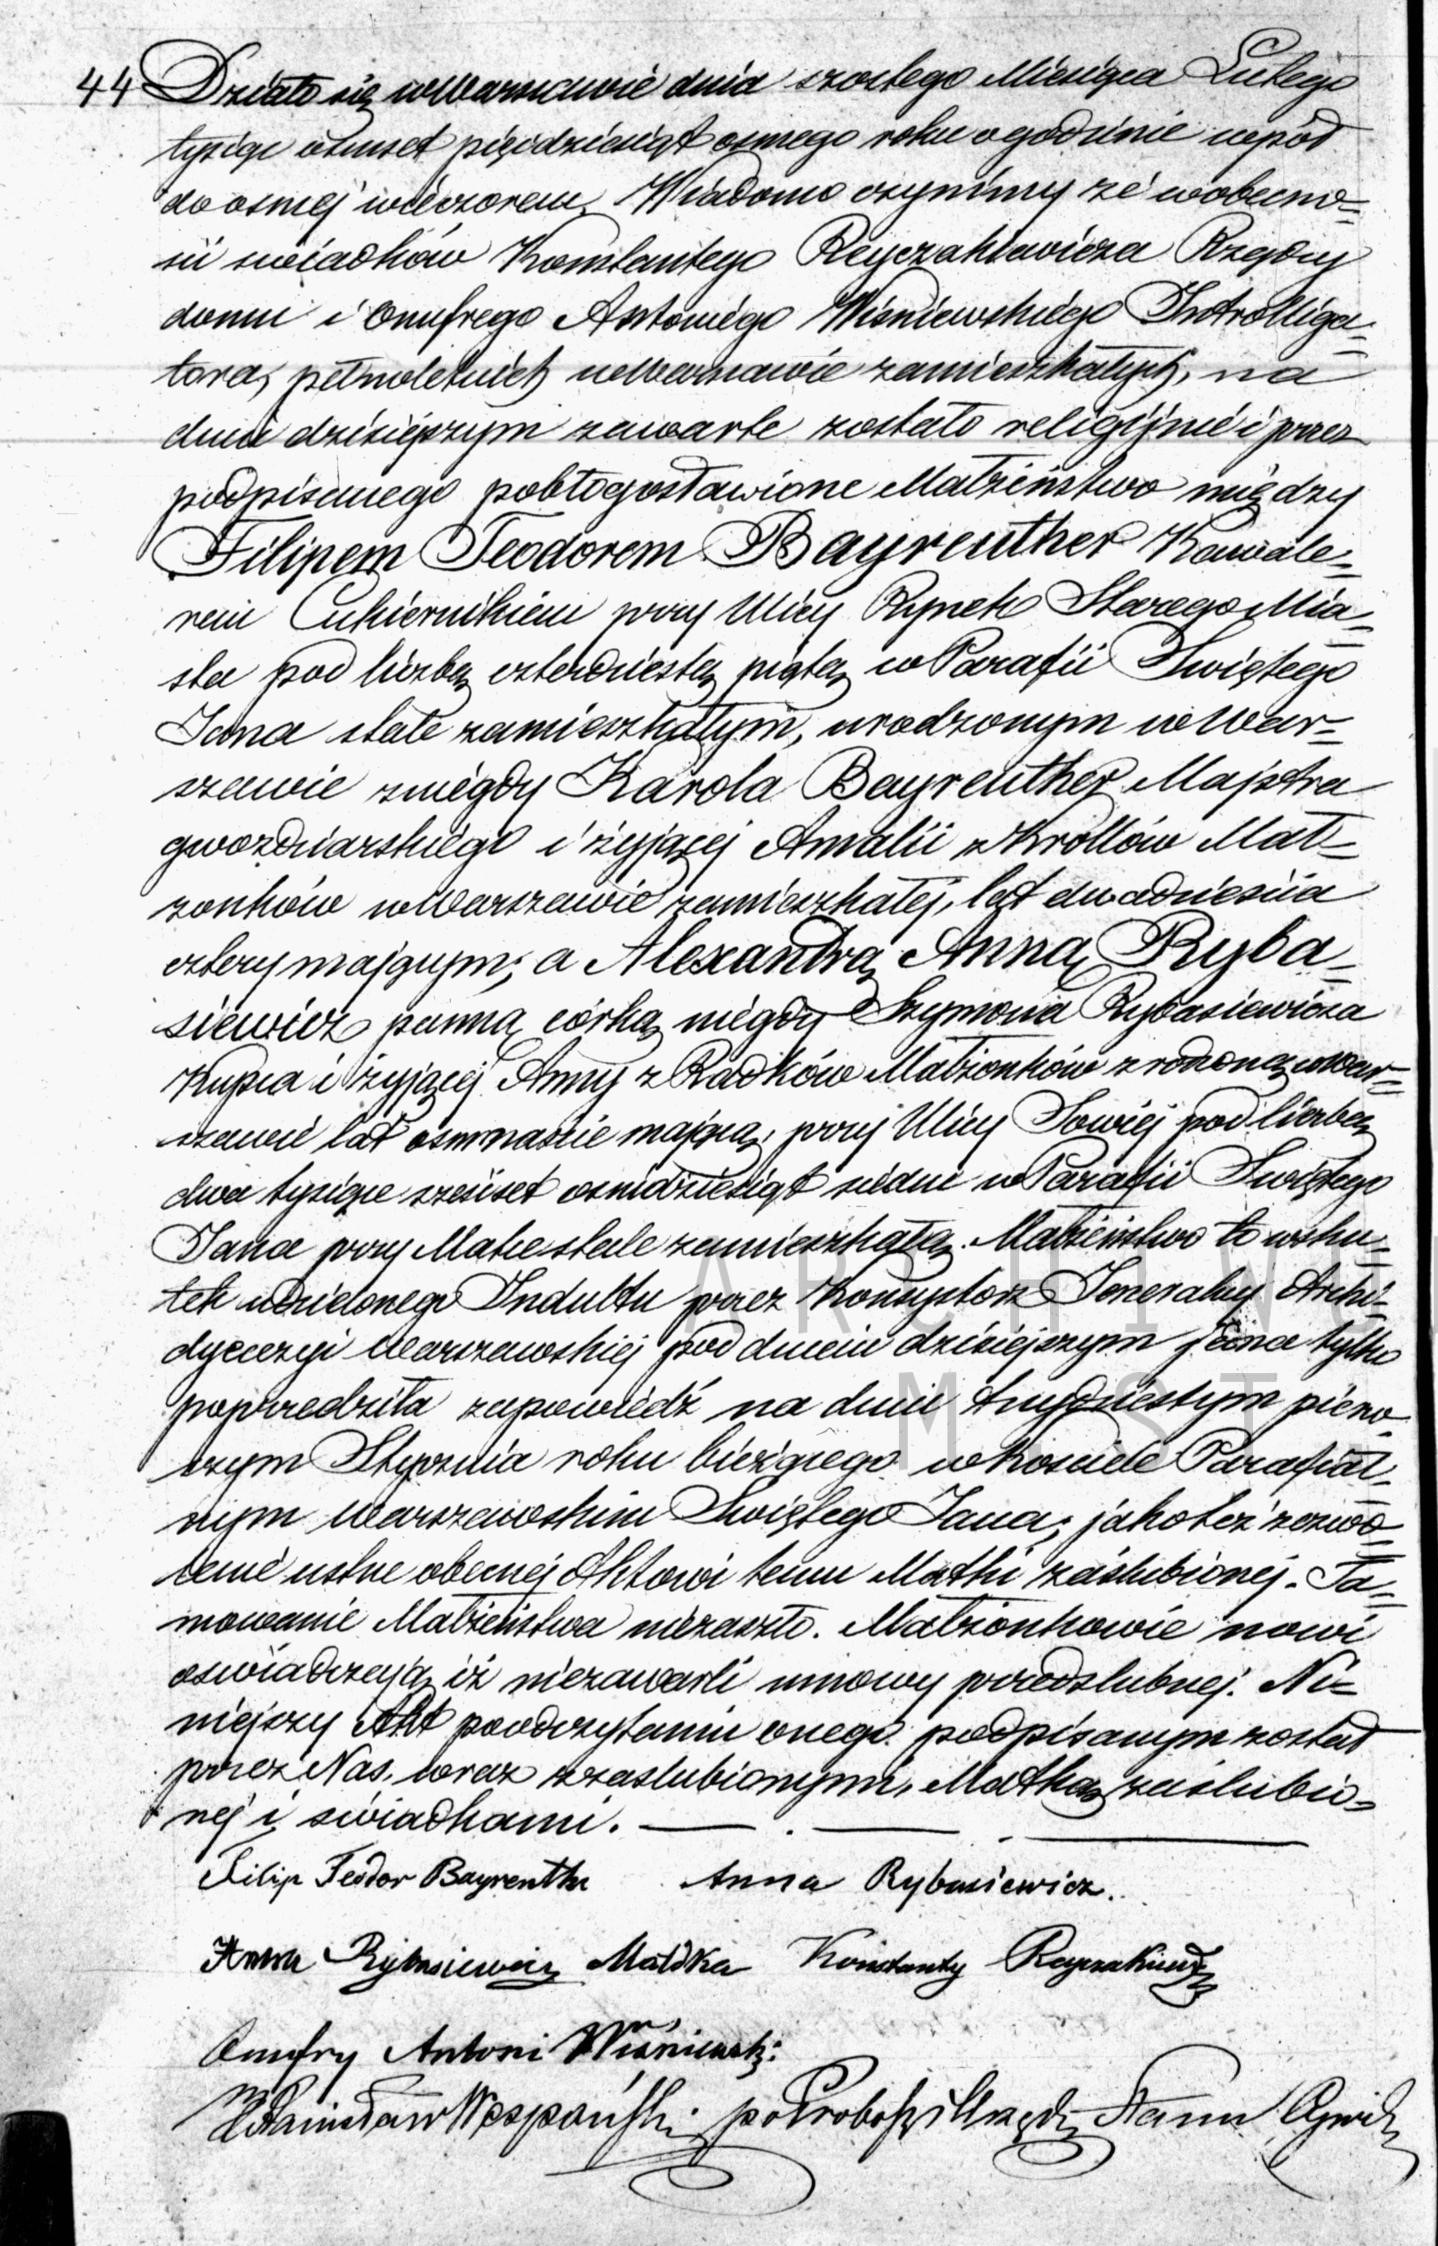 44 Działo się w Warszawie dnia szóstego Miesiąca Lutego
tysiąc ośmset pięćdziesiąt osmego roku o godzinie wpół
do osmej wieczorem. Wiadomo czynimy że wobecno=
ści świadków Konstantego Reyczakiewicza Rządcy
domu i Onufrego Antoniego Wisniewskiego Introlliga=
tora, pełnoletnich w Warszawie zamieszkałych, na
dniu dzisiejszym zawarte zostało religijnie i przez
podpisanego pobłogosławione Małżeństwo między
Filipem Teodorem Bayreuther Kawale=
rem Cukiernikiem przy Ulicy Rynek Starego Mia=
sta pod liczbą czterdziestą piątą w Parafii Swiętego
Jana stale zamieszkałym, urodzonym w War=
szawie z niegdy Karola Bayreuther Majstra
gwozdziarskiego i żyjącej Amalii z Krollów Mał=
zonków w Warszawie zamieszkałej, lat dwadzieścia
cztery mającym; a Alexandrą Anną Ryba=
siewicz panną córką niegdy Szymona Rybasiewicza
Kupca i żyjącej Anny z Radków Małżonków zrodzoną w War=
szawie lat osmnaście mającą, przy Ulicy Sowiej pod liczbą
dwa tysiące sześćset osmdziesiąt siedm w Parafii Swiętego
Jana przy Matce stale zamieszkałą. Małżeństwo to wsku=
tek udzielonego Indultu przez Konsystorz Jeneralny Archi=
dyecezyi Warszawskiej pod dniem dzisiejszym jedna tylko
poprzedziła zapowiedź na dniu trzydziestym pierw=
szym Stycznia roku bieżącego w Kościele Parafial=
nym Warszawskim Swiętego Jana; jakoteż zezwo=
lenie ustne obecnej Aktowi temu Matki zaślubionej. Ta=
mowanie Małżeństwa niezaszło. Małżonkowie nowi
oświadczają iż niezawarli umowy przedślubnej. Ni=
niejszy Akt po odczytaniu onego podpisanym został
przez Nas, wraz z zaslubionymi, Matką zaślubio=
nej i świadkami.
Filip Teodor Bayreuther Anna Rybasiewicz.
Anna Rybasiewicz Matka Konstanty Reyczakiewicz
Onufry Antoni Wiśniewski
po Proboszcz Urzęd Stanu Cywil
ARCHIWU
M ST